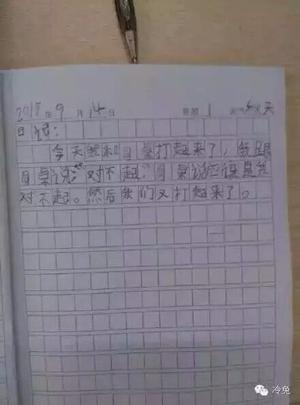 2015年9月14日 星期1 天气 天
日记:
今天我和同桌打起来了,我跟
同桌说:对不起.同桌说应该是我
对不起。然后我们又打起来了。
冷兔